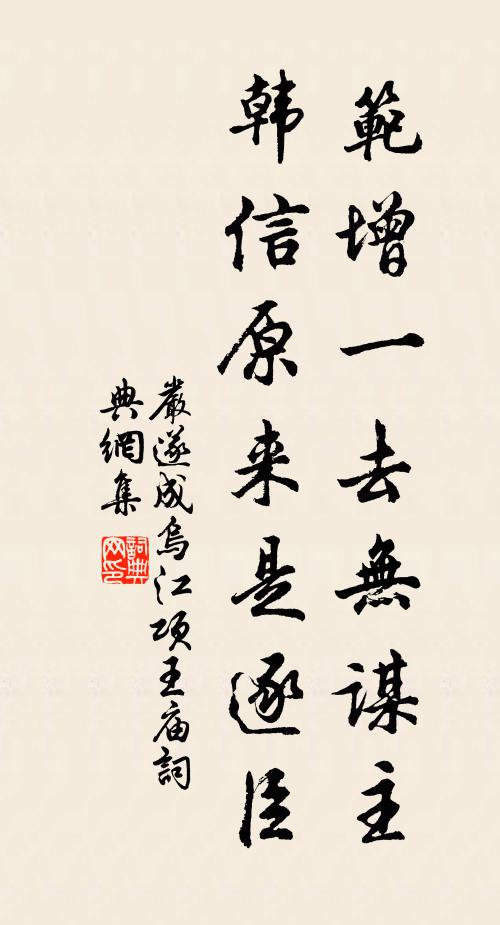 範增一去無謀主
韓信原来是逐臣
嚴遂成烏江项王庙詞
典網集
詞典
网印